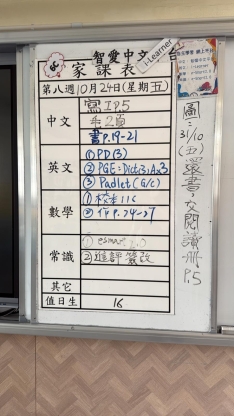 智愛中文 台
i-Learner
家課表
第八週 10月24日(星期五)
中文
寫 P.5
手2頁
書P.19-21
英文
① PD(3)
② PGE: Dict(3), A.3
③ Padlet (G/c)
數學
① 校本 116
② 作P.24-27
常識
① esmart 2.0
② 進評簽改
其它
值日生 16
圖:31/10(五)還書,交閱讀冊P.5